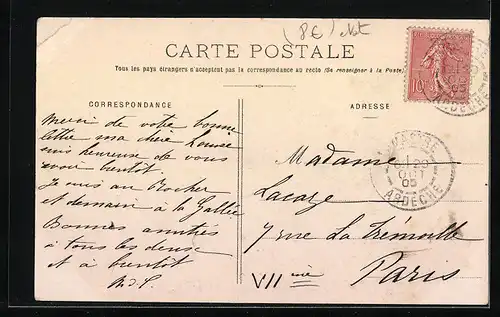 (8€) Net
CARTE POSTALE
Tous les pays étrangers n'acceptent pas la correspondance au recto (Se renseigner à la Poste)
CORRESPONDANCE
ADRESSE
Merci de votre bonne
lettre ma chère Louise
suis heureuse de vous
voir bientôt.
Je suis au Rocher
et demain à la
Bonnes amitiés
à tous les deux
et à bientôt
Madame
Lacaze
7 rue La Trémoille
Paris
VIIème
10
29
OCT
05
ARDECHE
05
ARDECHE